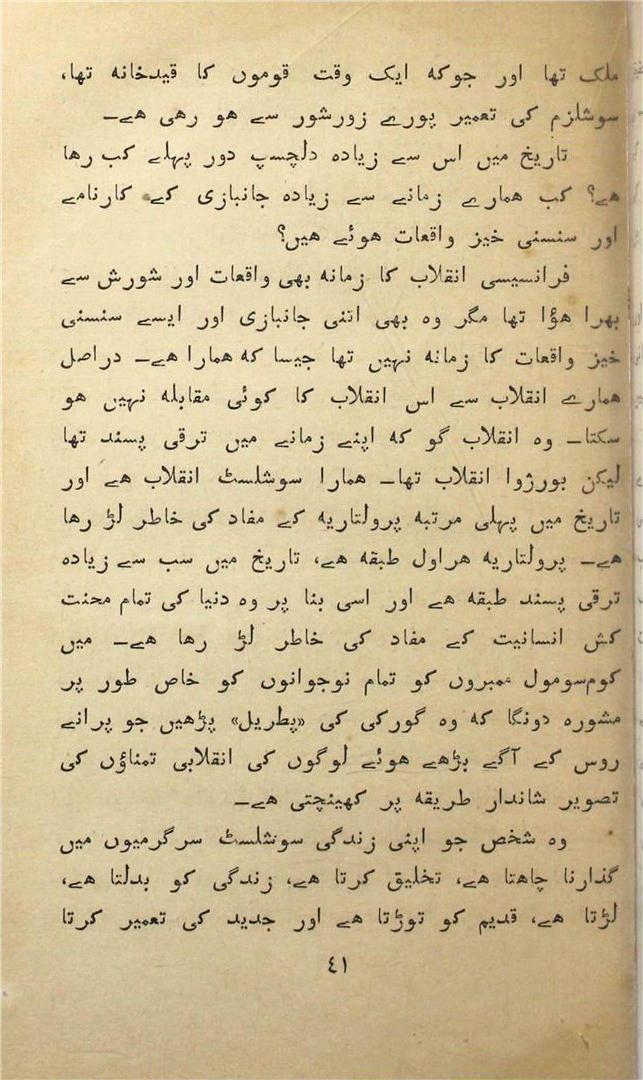 ملک تھا اور جوکہ ایک وقت قوموں کا قیدخانہ تھا،
سوشلزم کی تعمیر پورے زورشور سے ھو رھی ھے۔
تاریخ میں اس سے زیادہ دلچسپ دور پہلے کب رھا
ھے؟ کب ھمارے زمانے سے زیادہ جانبازی کے کارنامے
اور سنسنی خیز واقعات ھوئے ھیں؟
فرانسیسی انقلاب کا زمانہ بھی واقعات اور شورش سے
بھرا ھؤا تھا مگر وہ بھی اتنی جانبازی اور ایسے سنسنی
خیز واقعات کا زمانہ نہیں تھا جیسا کہ ھمارا ھے۔ دراصل
ھمارے انقلاب سے اس انقلاب کا کوئی مقابلہ نہیں ھو
سکتا۔ وہ انقلاب گو کہ اپنے زمانے میں ترقی پسند تھا
لیکن بورژوا انقلاب تھا۔ ھمارا سوشلسٹ انقلاب ھے اور
تاریخ میں پہلی مرتبہ پرولتاریہ کے مفاد کی خاطر لڑ رھا
ھے۔ پرولتاریہ ھراول طبقہ ھے، تاریخ میں سب سے زیادہ
ترقی پسند طبقہ ھے اور اسی بنا پر وہ دنیا کی تمام محنت
کش انسانیت کے مفاد کی خاطر لڑ رھا ھے۔ میں
کوم‌سومول ممبروں کو تمام نوجوانوں کو خاص طور پر
مشورہ دونگا کہ وہ گورکی کی «پطریل» پڑھیں جو پرانے
روس کے آگے بڑھے ھوئے لوگوں کی انقلابی تمناؤں کی
تصویر شاندار طریقہ پر کھینچتی ھے۔
وہ شخص جو اپنی زندگی سوشلسٹ سرگرمیوں میں
گذارنا چاھتا ھے، تخلیق کرتا ھے، زندگی کو بدلتا ھے،
لڑتا ھے، قدیم کو توڑتا ھے اور جدید کی تعمیر کرتا
٤١